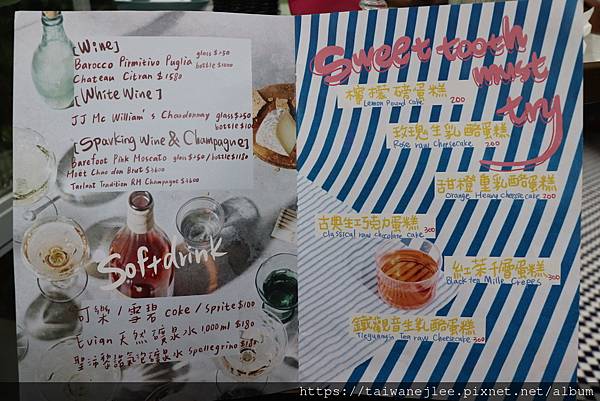 [Wine]
Barocco Pirmitivo Puglia glass $250
bottle $1000
Chateau Citran $1580
[White Wine]
JJ Mc William's Chardonnay glass $250
bottle $100
[Sparking Wine & Champagne]
Barefoot Pink Moscato glass $250/bottle $1180
Moët Chandon Brut $3600
Tarlant Tradition RH Champagne $3600
Softdrink
可樂/雪碧 coke/sprite $100
Evian 天然礦泉水 1,000ml $180
聖沛黎洛氣泡礦泉水 Spellegrino $180
Sweet tooth
must
try
檸檬磅蛋糕
Lemon Pound Cake 200
玫瑰生乳酪蛋糕
Rose raw Cheesecake 200
甜橙重乳酪蛋糕
Orange Heavy cheesecake 200
古典生巧克力蛋糕
Classical raw chocolate cake 300
紅茶千層蛋糕
Black tea Mille Crepes 300
鐵觀音生乳酪蛋糕
Tieguanyin Tea raw Cheesecake 300
https://taiwanejlee.pixnet.net/album